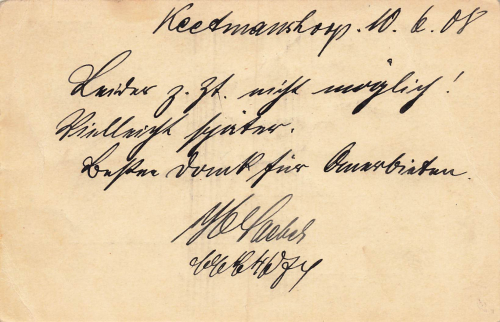 Keetmanshoop. 10. 6. 08
Leider z. Zt. nicht möglich!
Vielleicht später.
Besten Dank für Anerbieten.